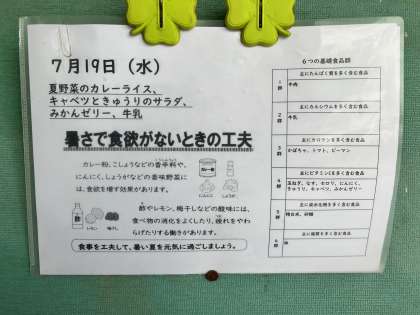 7月19日（水）
夏野菜のカレーライス、
キャベツときゅうりのサラダ、
みかんゼリー、牛乳
暑さで食欲がないときの工夫
カレー粉、こしょうなどの香辛料や、
にんにく、しょうがなどの香味野菜に
は、食欲を増す効果があります。
カレー粉
にんにく
しょうが
酢
レモン
梅干し
酢やレモン、梅干しなどの酸味には、
食べ物の消化をよくしたり、疲れをやわ
らげたりする働きがあります。
食事を工夫して、暑い夏を元気に過ごしましょう。
6つの基礎食品群
1群
主にたんぱく質を多く含む食品
牛肉
2群
主にカルシウムを多く含む食品
牛乳
3群
主にカロテンを多く含む食品
かぼちゃ、トマト、ピーマン
4群
主にビタミンCを多く含む食品
玉ねぎ、なす、セロリ、にんにく、
きゅうり、キャベツ、みかんゼリー
5群
主に炭水化物を多く含む食品
精白米、砂糖
6群
主に脂質を多く含む食品
油